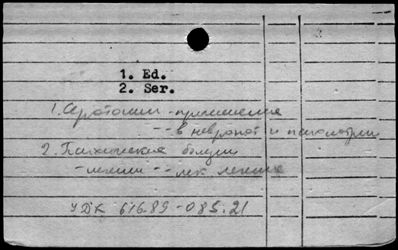 1. Ed.
2. Ser.
1. Серотонин - применение
-- в невропат и психиатрии
2. Психические болезни
- лечение -- лек. лечение
УДК 616.89-085.21